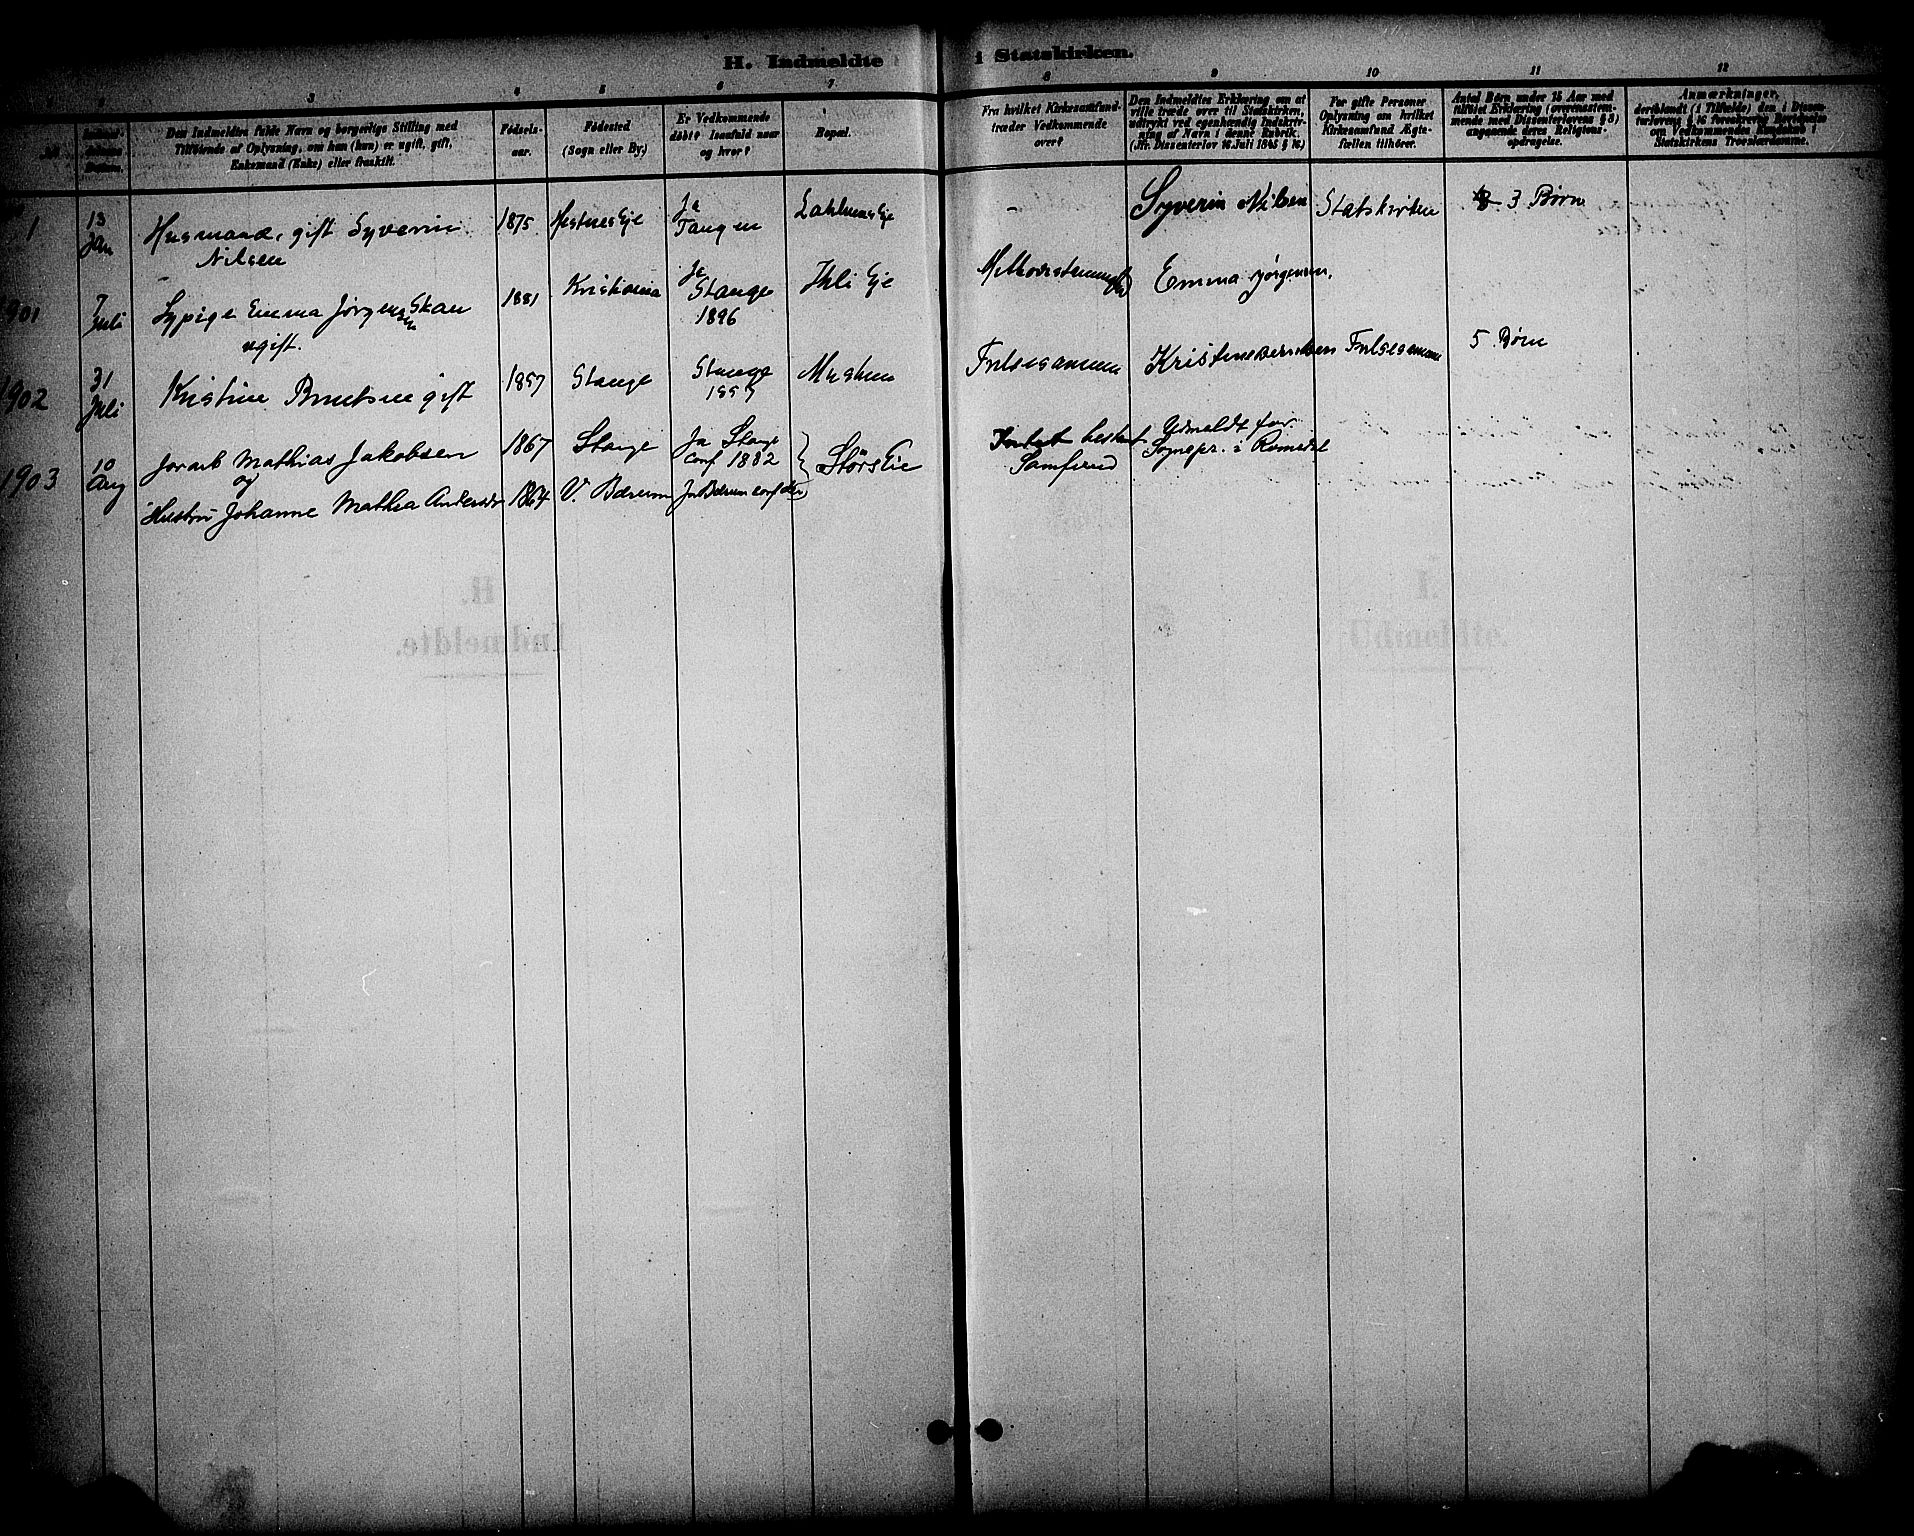 H. Indmeldte i Statskirken.
3 4 5 6 7 8 9 10 11 12
Den Indmeldtes fulde Navn og borgerlige Stilling med
Tilføiende af Oplysning, om han (hun) er ugift, gift,
Enkemand (Enke) eller fraskilt.
Fødsels-
aar.
Fødested
(Sogn eller By.)
Er Vedkommende
døbt? Isaafald naar
og hvor?
Bopæl.
Fra hvilket Kirkesamfund
træder Vedkommende
over?
Den Indmeldtes Erklæring om at
ville træde over til Statskirken,
udtrykt ved egenhændig Indskriv-
ning af Navn i denne Rubrik.
(Jfr. Dissenterlov 16 Juli 1845 § 16)
For gifte Personer
Oplysning om hvilket
Kirkesamfund Ægte-
fællen tilhører.
Antal Børn under 15 Aar med
tilføiet Erklæring (overensstem-
mende med Dissenterlovens § 8)
angaaende deres Religions-
opdragelse.
Anmærkninger,
deriblandt (i Tilfælde) den i Dissen-
terlovens § 16 foreskrevne Bevidnelse
om Vedkommendes Kundskab i
Statskirkens Troeslærdomme.
1 13 Jan Husmand, gift Syverin
Nilsen
1875 Hestnes Eje Ja
Tangen
- Syverin Nilsen Statskirken 3 Børn
1901 7 Juli Sypige Emma Jørgensen Skau
ugift.
1881 Kristiania Ja
Stange
1896
Ihli Eje
Emma Jørgensen.
1902 31 Juli Kristine Berntsen gift
1857 Stange Stange
1857
Frelsesarmeen Kristine Berntsen Frelsesarmeen 5 Børn
1903 10 Aug Mathias Jakobsen
og
Hustru Johanne Mathea Andersdr
1867 Stange Ja Stange
conf 1882
1864 V. Bærum Ja Bærum conf der
Størs Eie
Intet bestemt
Samfund
Udmeldt for
Sognepr. i Romedal
H.
Indmeldte.
I.
Udmeldte.